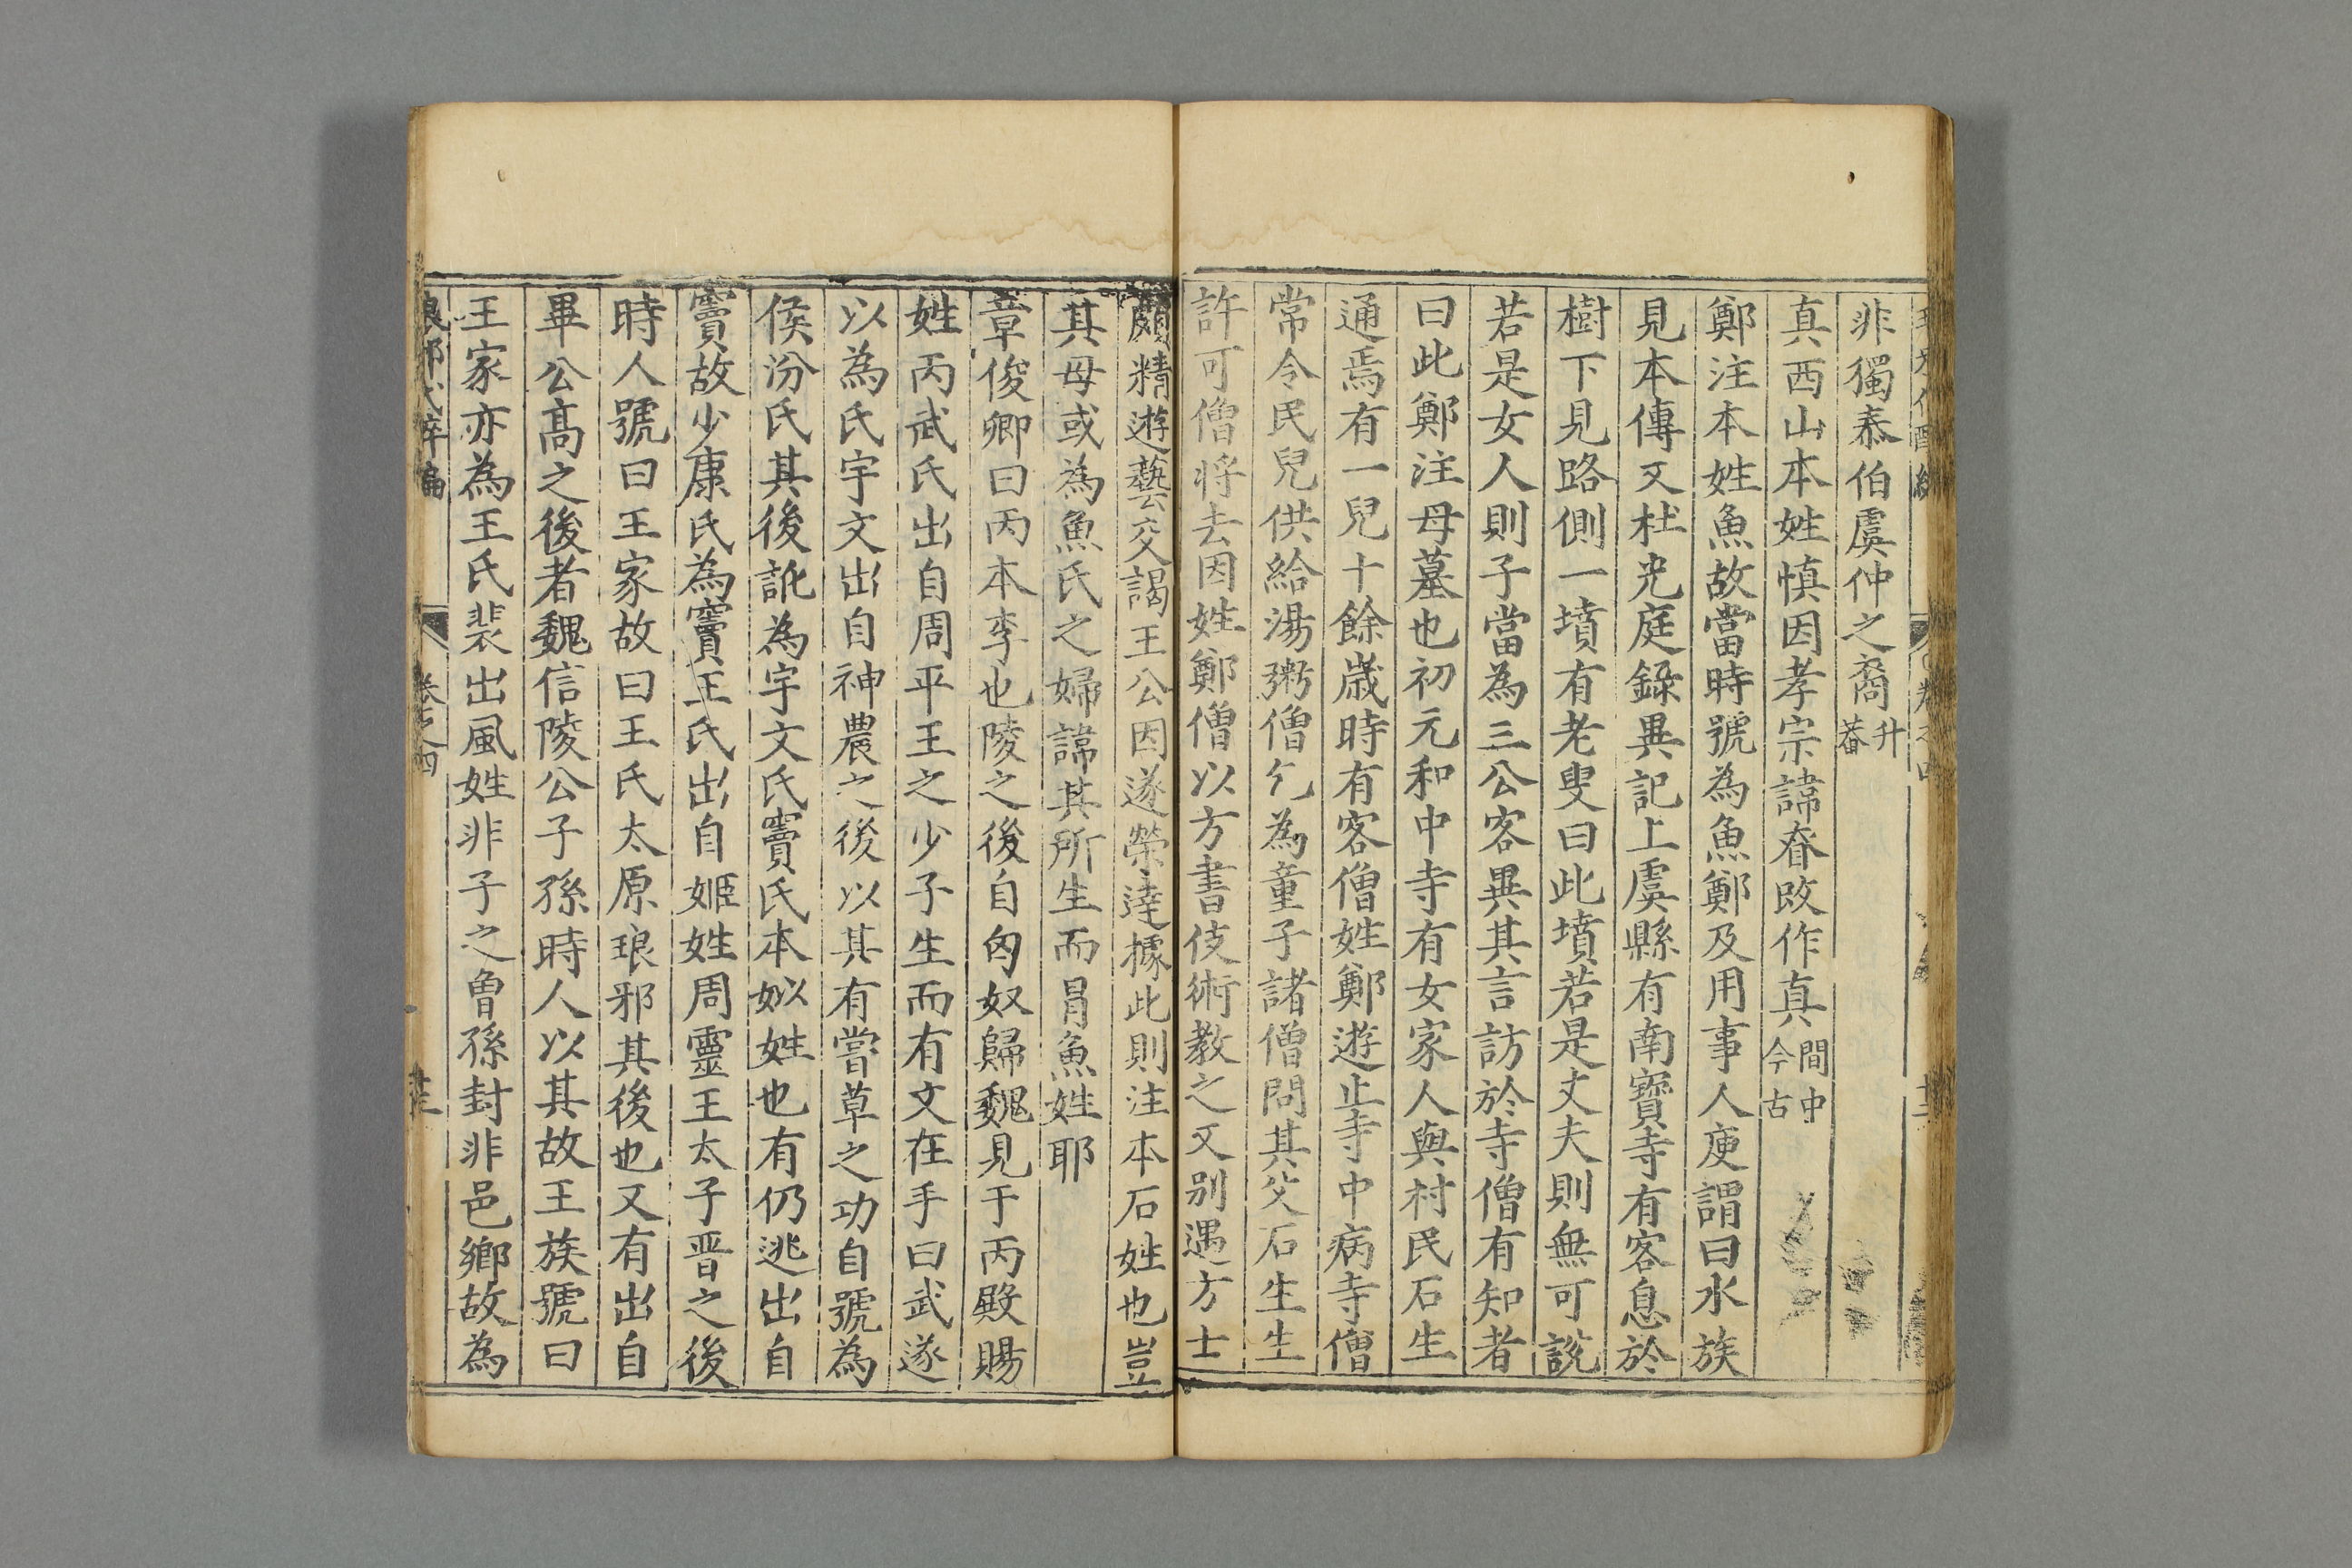 非獨泰伯虞仲之裔升菴
真西山本姓慎因孝宗諱昚改作真間中今古
鄭注本姓魚故當時號為魚鄭及用事人庾謂曰水族
見本傳又杜光庭錄異記上虞縣有南寶寺有客息於
樹下見路側一墳有老叟曰此墳若是丈夫則無可說
若是女人則子當為三公客異其言訪於寺僧有知者
曰此鄭注母墓也初元和中寺有女家人與村民石生
通焉有一兒十餘歲時有客僧姓鄭遊止寺中病寺僧
常令民兒供給湯粥僧乞為童子諸僧問其父石生生
許可僧將去因姓鄭僧以方書伎術教之又別遇方士
頗精遊藝交謁王公因遂榮達據此則注本石姓也豈
其母或為魚氏之婦諱其所生而冐魚姓耶
章俊卿曰丙本李也陵之後自匈奴歸魏見于丙殿賜
姓丙武氏出自周平王之少子生而有文在手曰武遂
以為氏宇文出自神農之後以其有嘗草之功自號為
侯汾氏其後訛為宇文氏竇氏本姒姓也有仍逃出自
竇故少康氏為竇王氏出自姬姓周靈王太子晋之後
時人號曰王家故曰王氏太原琅邪其後也又有出自
畢公高之後者魏信陵公子孫時人以其故王族號曰
王家亦為王氏裴出風姓非子之曾孫封非邑鄉故為
琅邪代醉編 卷之四